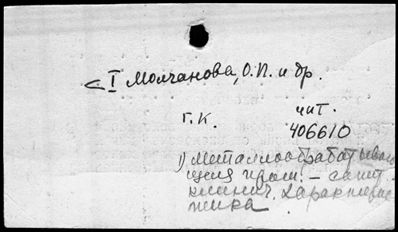 < I Молчанова, О.П. и др.
чит.
Г.К.
406610
1) Металлообрабатываю
щая пром. – санит.
клинич. характерис
тика